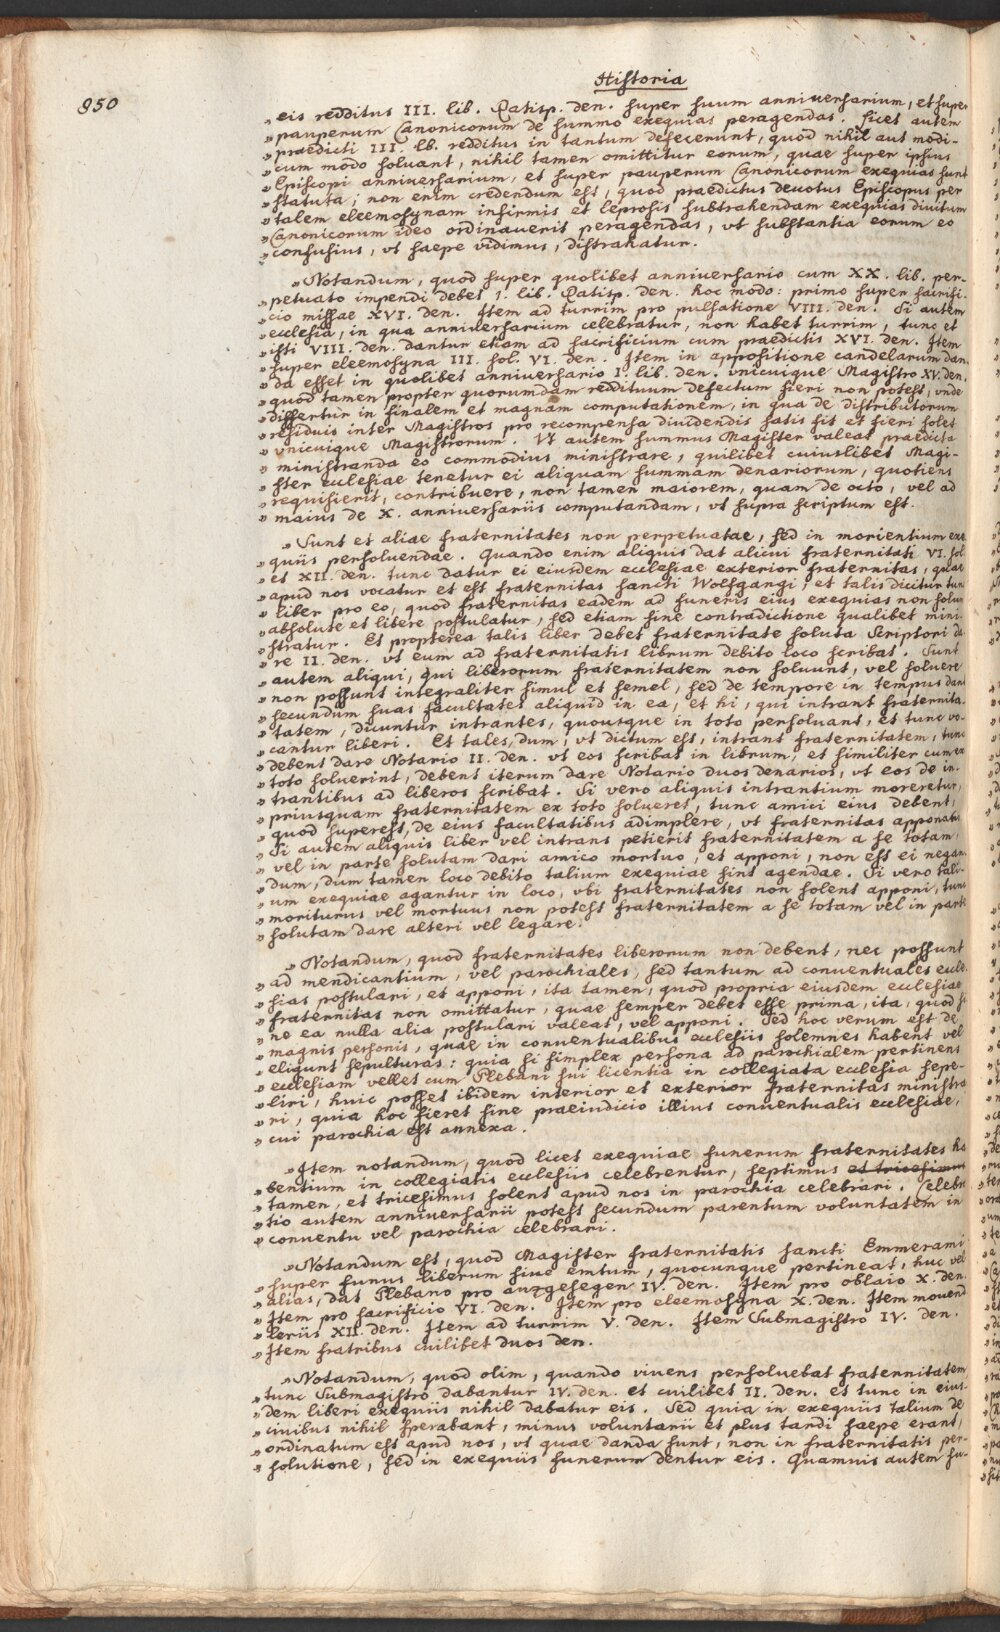 Historia
850
„ eis redditus III. lib. Ratisp. den. super suum anniuersarium, et super
„ pauperum Canonicorum de summo exequias peragendas. Licet autem
„ praedicti III. lb. redditus in tantum defecerunt, quod nihil aut modi-
„ cum modo soluant, nihil tamen omittitur eorum, quae super ipsius
„ Episcopi anniuersarium, et super pauperum Canonicorum exequias sunt
„ statuta; non enim credendum est, quod praedictus deuotus Episcopus per
„ talem eleemosynam infirmis et leprosis subtrahendam exequias diuitum
„ Canonicorum ideo ordinauerit peragendas, vt substantia eorum eo
„ confusius, vt saepe vidimus, distrahatur.
„ Notandum, quod super quolibet anniuersario cum XX. lib. per-
„ petuato impendi debet 1. lib. Ratisp. den. hoc modo: primo super sacrifi-
„ cio missae XVI. den. Item ad turrim pro pulsatione VIII. den. Si autem
„ ecclesia, in qua anniuersarium celebratur, non habet turrim, tunc et
„ isti VIII. den. dantur etiam ad sacrificium cum praedictis XVI. den. Item
„ super eleemosyna III. sol. VI. den. Item in appositione candelarum dan-
„ da esset in quolibet anniuersario 1. lib. den. vnicuique Magistro XV. den.
„ quod tamen propter quorumdam reddituum defectum fieri non potest, vnde
„ differtur in finalem et magnam computationem, in qua de distributorum
„ residuis inter Magistros pro recompensa diuidendis satis fit et fieri solet
„ vnicuique Magistrorum. Vt autem summus Magister valeat praedicta
„ ministranda eo commodius ministrare, quilibet cuiuslibet Magi-
„ ster ecclesiae tenetur ei aliquam summam denariorum, quotiens
„ requisierit, contribuere, non tamen maiorem, quam de octo, vel ad
„ maius de X. anniuersariis computandam, vt supra scriptum est.
„ Sunt et aliae fraternitates non perpetuatae, sed in morientium exe
„ quiis persoluendae. Quando enim aliquis dat alicui fraternitati VI. sol
„ et XII. den. tunc datur ei eiusdem ecclesiae exterior fraternitas, quae
„ apud nos vocatur et est fraternitas sancti Wolfgangi; et talis dicitur tunc
„ liber pro eo, quod fraternitas eadem ad funeris eius exequias non solum
„ absolute et libere postulatur, sed etiam sine contradictione qualibet mini-
„ stratur. Et propterea talis liber debet fraternitate soluta Scriptori da
„ re II. den. vt eum ad fraternitatis librum debito loco scribat. Sunt
„ autem aliqui, qui liberorum fraternitatem non soluunt, vel soluere
„ non possunt integraliter simul et semel, sed de tempore in tempus dant
„ secundum suas facultates aliquid in ea, et hi, qui intrant fraterni-
„ tatem, dicuntur intrantes, quousque in toto persoluant, et tunc vo-
„ cantur liberi. Et tales, dum, vt dictum est, intrant fraternitatem, tunc
„ debent dare Notario II. den. vt eos scribat in librum, et similiter cum ex
„ toto soluerint, debent iterum dare Notario duos denarios, vt eos de in-
„ trantibus ad liberos scribat. Si vero aliquis intrantium moreretur,
„ priusquam fraternitatem ex toto solueret, tunc amici eius debent,
„ quod superest, de eius facultatibus adimplere, vt fraternitas apponatur
„ Si autem aliquis liber vel intrans petierit fraternitatem a se totam
„ vel in parte solutam dari amico mortuo, et apponi, non est ei negan-
„ dum, dum tamen loco debito talium exequiae sint agendae. Si vero tali-
„ um exequiae agantur in loco, vbi fraternitates non solent apponi, tunc
„ moriturus vel mortuus non potest fraternitatem a se totam vel in parte
„ solutam dare alteri vel legare.
„ Notandum, quod fraternitates liberorum non debent, nec possunt
„ ad mendicantium, vel parochiales, sed tantum ad conuentuales eccle-
„ sias postulari, et apponi, ita tamen, quod propria eiusdem ecclesiae
„ fraternitas non omittatur, quae semper debet esse prima, ita, quod si-
„ ne ea nulla alia postulari valeat, vel apponi. Sed hoc verum est de
„ magnis personis, quae in conuentualibus ecclesiis solemnes habent vel
„ eligunt sepulturas: quia si simplex persona ad parochialem pertinens
„ ecclesiam vellet cum Plebani sui licentia in collegiata ecclesia sepe-
„ liri, huic posset ibidem interior et exterior fraternitas ministra-
„ ri, quia hoc fieret sine praeiudicio illius conuentualis ecclesiae,
„ cui parochia est annexa.
„ Item notandum, quod licet exequiae funerum fraternitates ha
„ bentium in collegiatis ecclesiis celebrentur, septimus et tricesimus
„ tamen, et tricesimus solent apud nos in parochia celebrari. Celebra
„ tio autem anniuersarii potest secundum parentum voluntatem in
„ conuentu vel parochia celebrari.
„ Notandum est, quod Magister fraternitatis sancti Emmerami
„ super funus liberum siue emtum, quocunque pertineat, huc vel
„ alias, dat Plebano pro anzgesegen IV. den. Item pro oblaio X. den.
„ Item pro sacrificio VI. den. Item pro eleemosyna X. den. Item mouend
„ leriis XII. den. Item ad turrim V. den. Item Submagistro IV. den.
„ Item fratribus cuilibet duos den.
„ Notandum, quod olim, quando viuens persoluebat fraternitatem
„ tunc Submagistro dabantur IV. den. et cuilibet II. den. et tunc in eius-
„ dem liberi exequiis nihil dabatur eis. Sed quia in exequiis talium de
„ ciuibus nihil sperabant, minus voluntarii et plus tardi saepe erant,
„ ordinatum est apud nos, vt quae danda sunt, non in fraternitatis per-
„ solutione, sed in exequiis funerum dentur eis. Quamuis autem su-